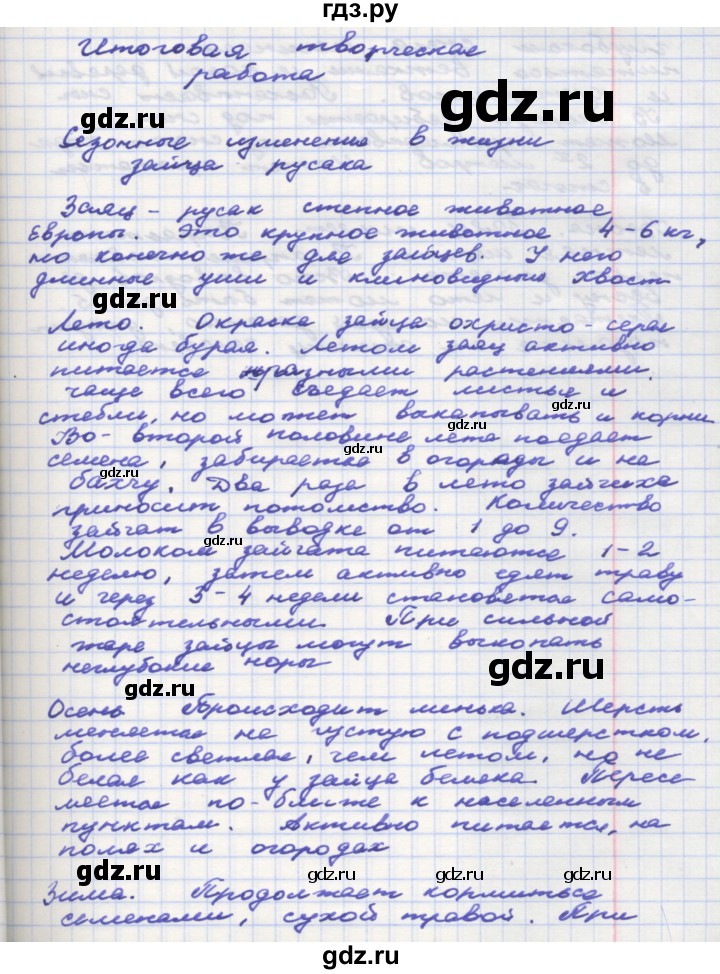 гдз.ру
Итоговая творческая
работа
gdz.ru
gdz.ru
Сезонные изменения в жизни
зайца русака
Заяц - русак степное животное
Европы. Это крупное животное 4-6 кг,
но конечно же для зайцев. У него
длинные уши и клиновидный хвост
gdz.ru
gdz.ru
Лето. Окраска зайца охристо-серая
иногда бурая. Летом заяц активно
питается разными растениями.
чаще всего съедает листья и
стебли, но может выкапывать и корни
gdz.ru
gdz.ru
Во-второй половине лета поедает
семена, забирается в огороды и на
бахчу. Два раза в лето зайчиха
приносит потомство. Количество
зайчат в выводке от 1 до 9.
gdz.ru
gdz.ru
Молоком зайчата питаются 1-2
неделю, затем активно едят траву
и через 3-4 недели становятся само-
стоятельными. При сильной
жаре зайцы могут выкопать
неглубокие норы
gdz.ru
gdz.ru
gdz.ru
Осень Происходит линька. Шерсть
меняется на густую с подшерстком,
более светлая, чем летом, но не
белая как у зайца беляка. Пересе-
мяется по-ближе к населенным
пунктам. Активно питается, на
полях и огородах
gdz.ru
gdz.ru
gdz.ru
Зима. Продолжает кормиться
семенами, сухой травой. При
gdz.ru